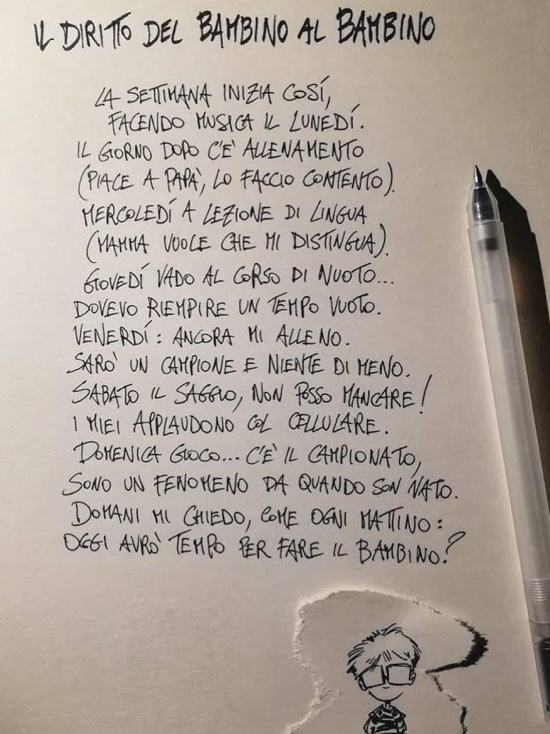 IL DIRITTO DEL BAMBINO AL BAMBINO
LA SETTIMANA INIZIA COSÍ,
FACENDO MUSICA IL LUNEDÍ.
IL GIORNO DOPO C'È ALLENAMENTO
(PIACE A PAPÀ, LO FACCIO CONTENTO).
MERCOLEDÍ A LEZIONE DI LINGUA
(MAMMA VUOLE CHE MI DISTINGUA).
GIOVEDÍ VADO AL CORSO DI NUOTO...
DOVEVO RIEMPIRE UN TEMPO VUOTO.
VENERDÍ: ANCORA MI ALLENO.
SARÒ UN CAMPIONE E NIENTE DI MENO.
SABATO IL SAGGIO, NON POSSO MANCARE!
I MIEI APPLAUDONO COL CELLULARE.
DOMENICA GIOCO... C'È IL CAMPIONATO,
SONO UN FENOMENO DA QUANDO SON NATO.
DOMANI MI CHIEDO, COME OGNI MATTINO:
OGGI AVRÒ TEMPO PER FARE IL BAMBINO?